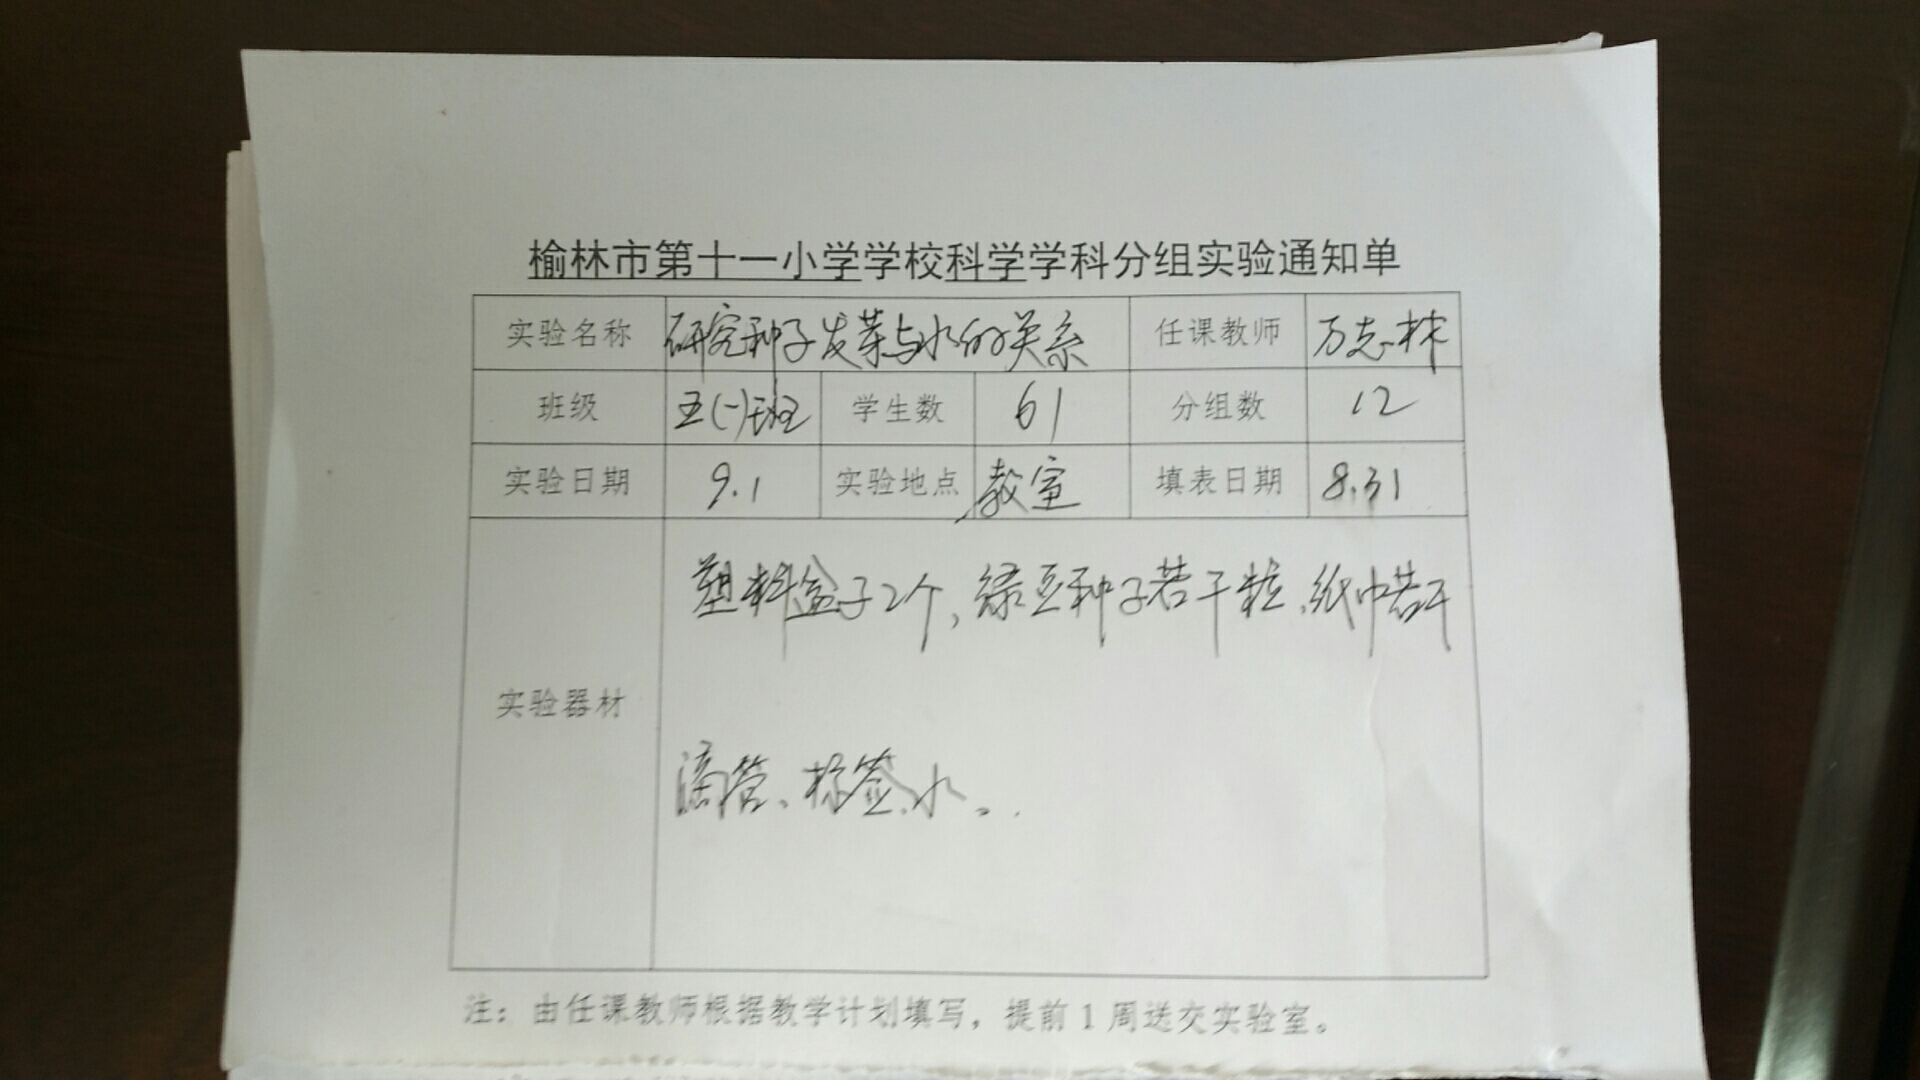 榆林市第十一小学学校科学学科分组实验通知单
实验名称 研究种子发芽与水的关系 任课教师 万志林
班级 五(一)班 学生数 61 分组数 12
实验日期 9.1 实验地点 教室 填表日期 8.31
塑料盒子2个,绿豆种子若干粒、纸巾若干
实验器材
滴管、标签、水。
注：由任课教师根据教学计划填写，提前1周送交实验室。